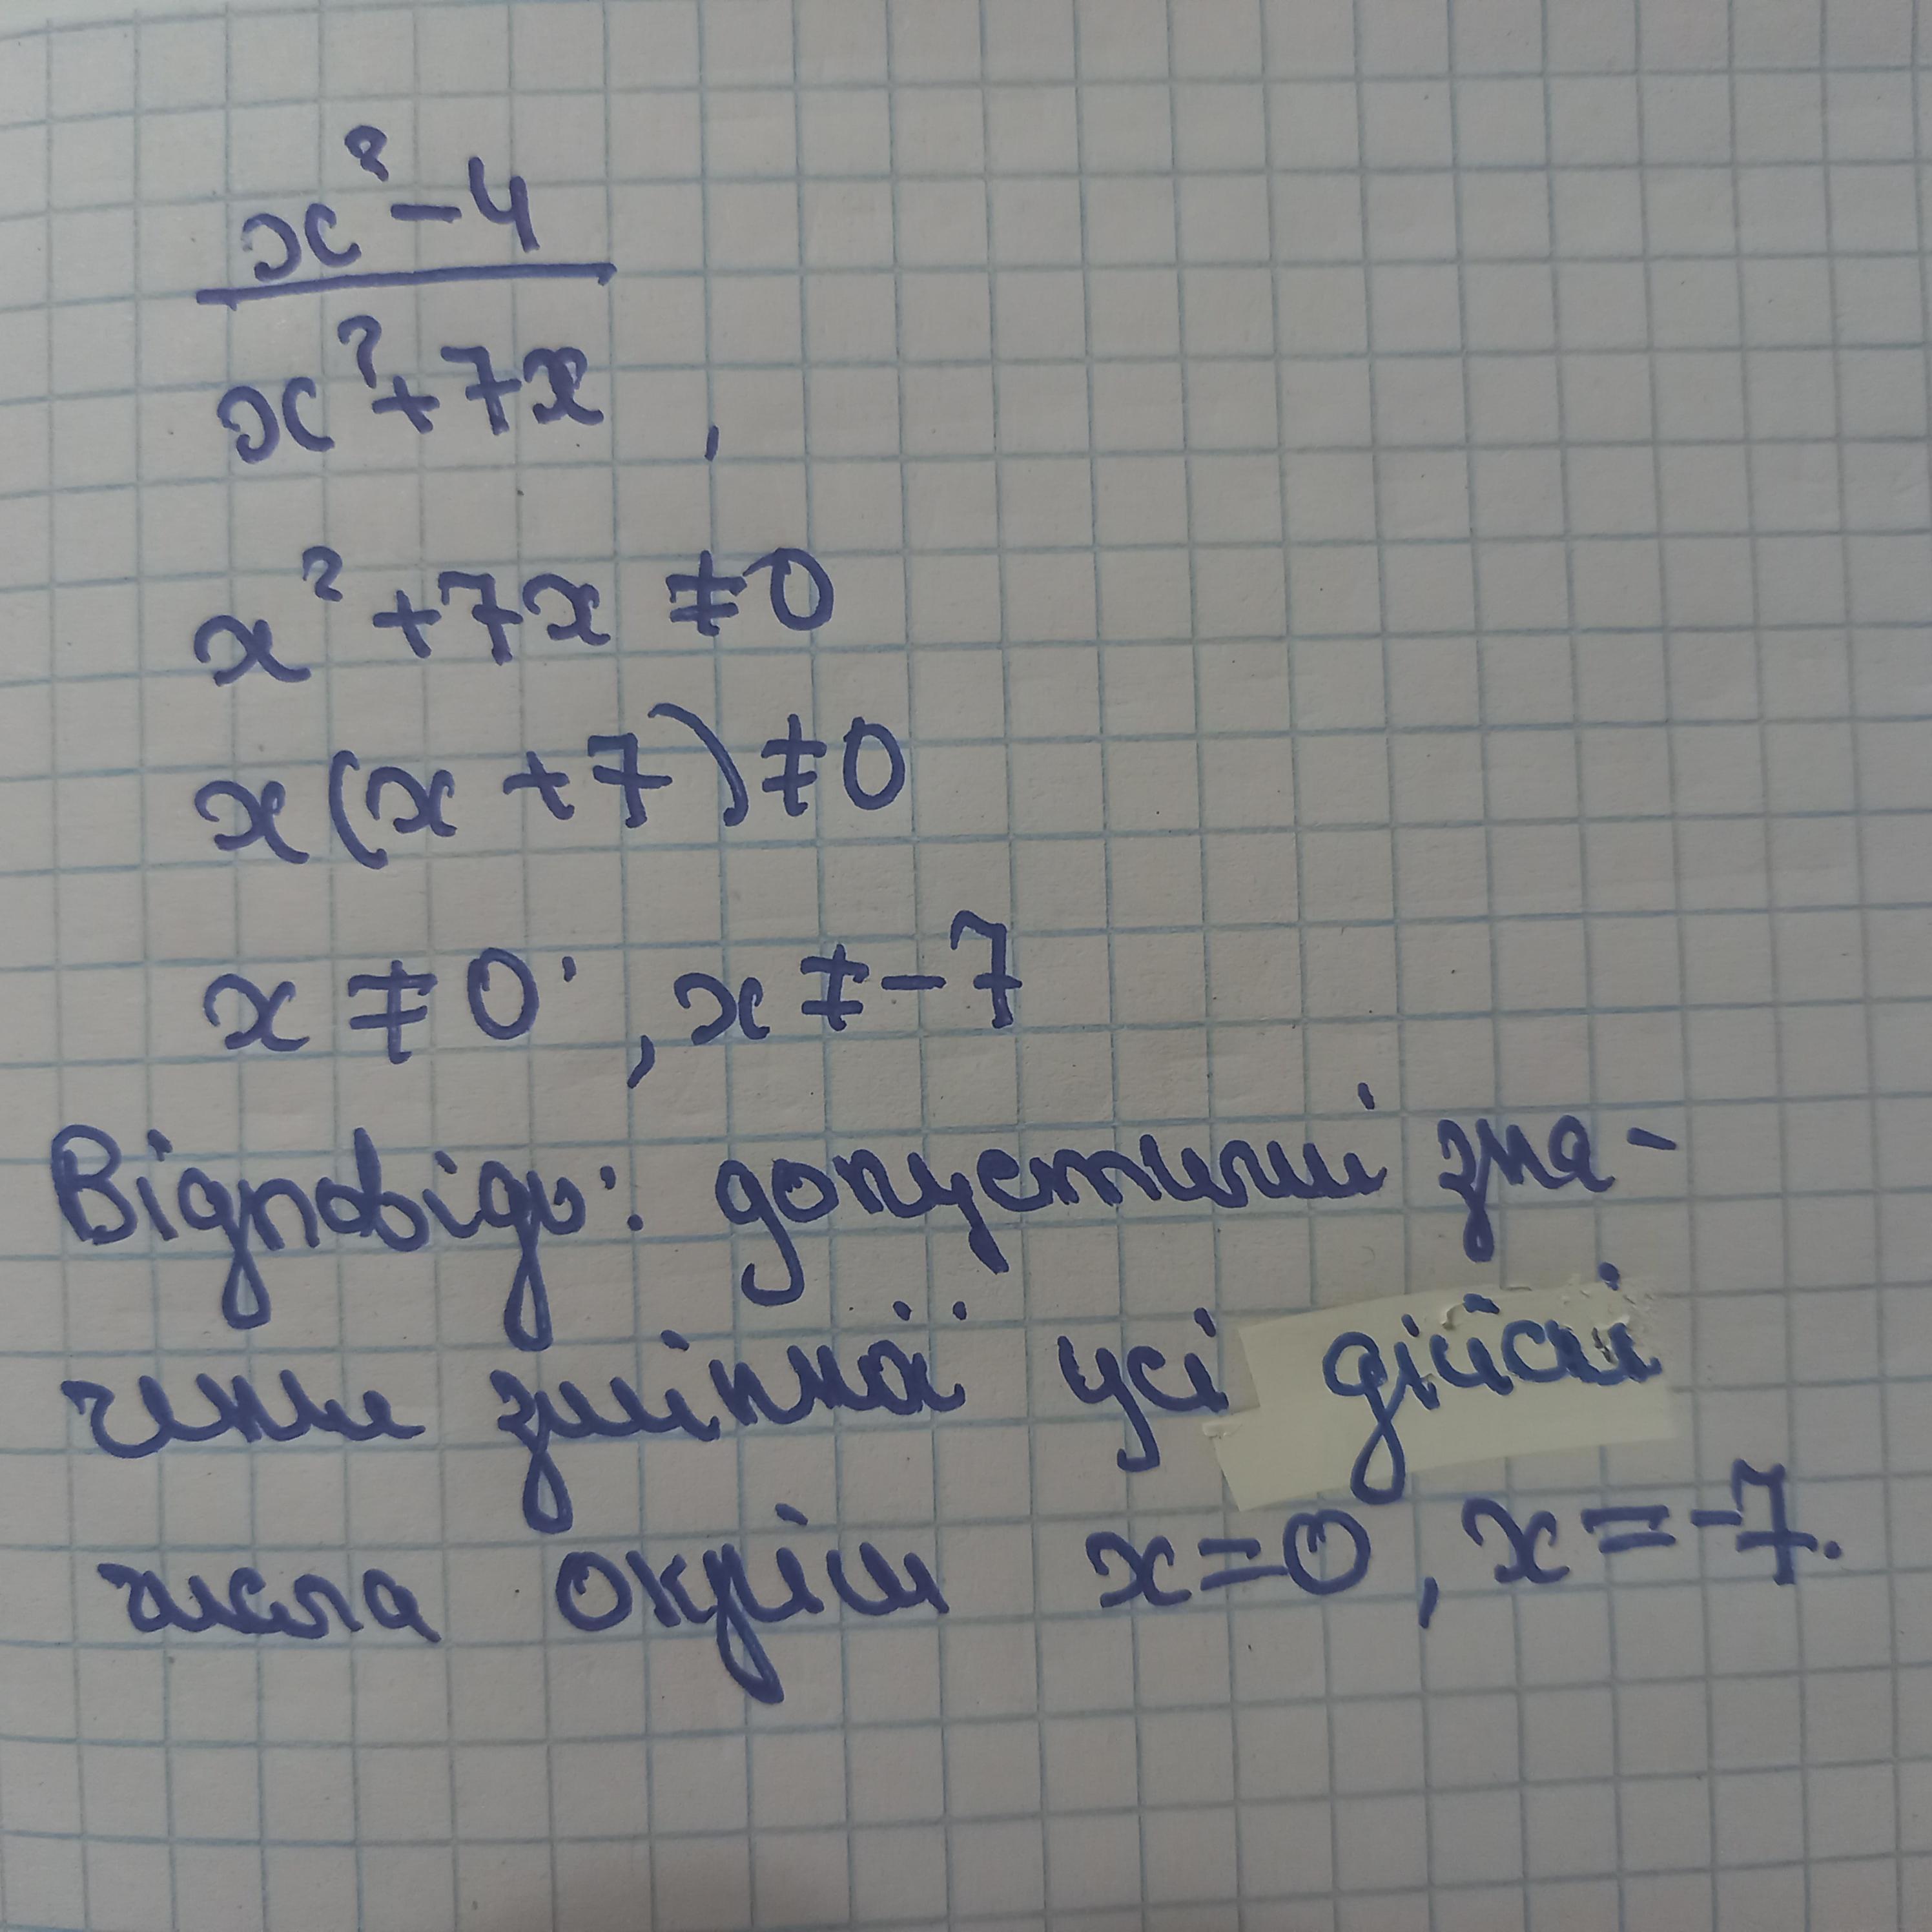 x² - 4
x² + 7x ,
x² + 7x ≠ 0
x(x + 7) ≠ 0
x ≠ 0 , x ≠ -7
Відповідь: допустимі зна-
чення змінної усі дійсні
числа окрім x = 0, x = -7.